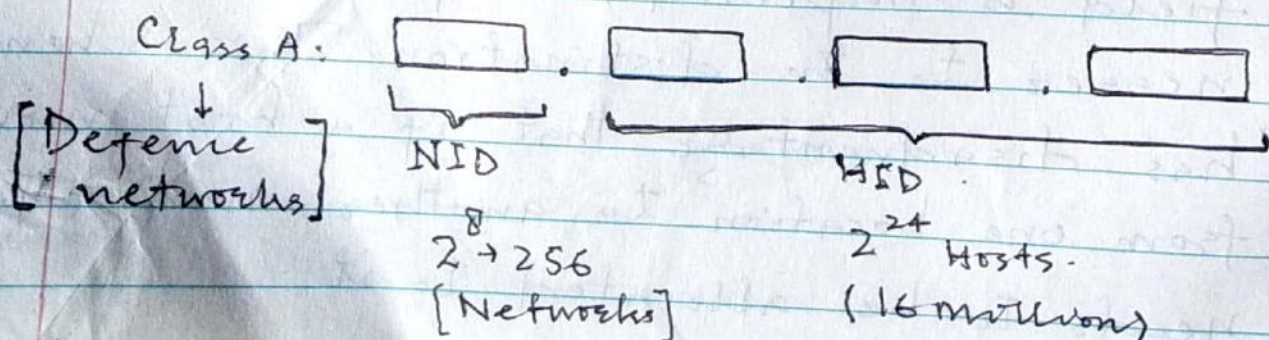 Class A:
. . .
↓
[Defence networks]
NID
HID
2^8 → 256
[Networks]
2^24 Hosts.
(16 million)